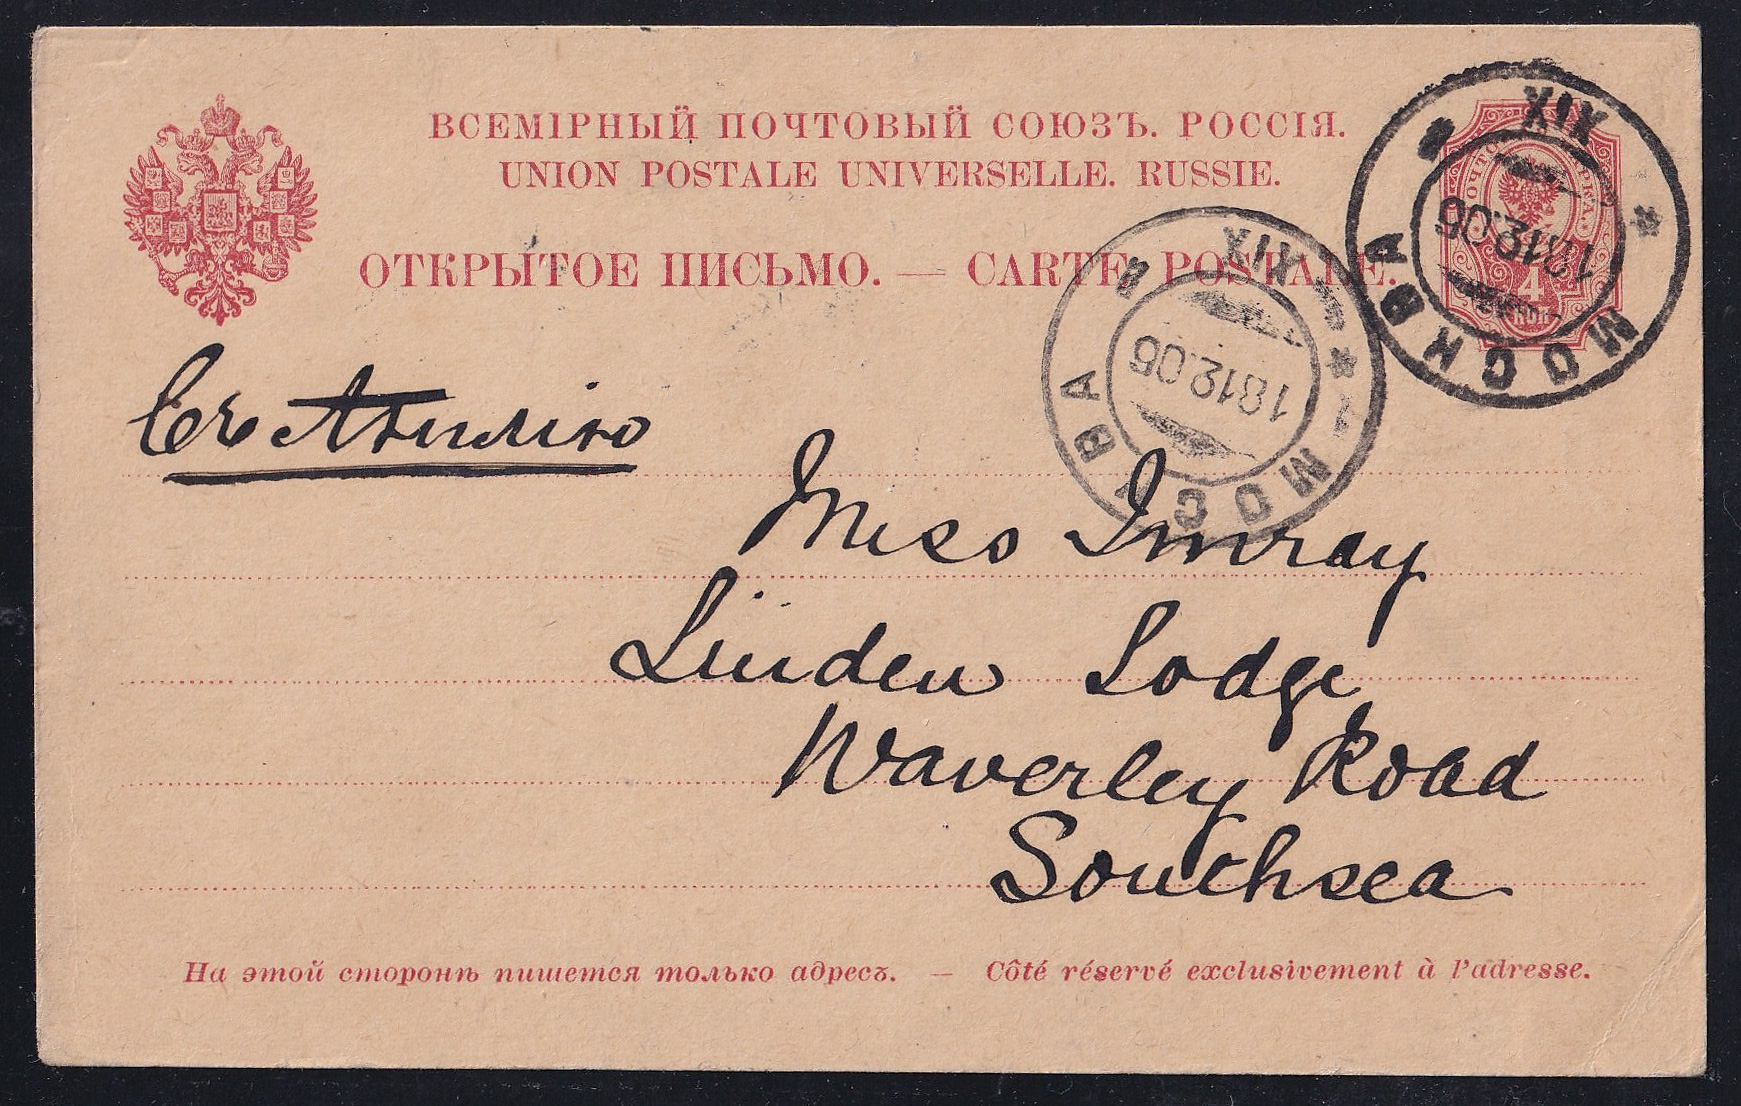 ВСЕМІРНЫЙ ПОЧТОВЫЙ СОЮЗЪ. РОССІЯ.
UNION POSTALE UNIVERSELLE. RUSSIE.
ОТКРЫТОЕ ПИСЬМО. — CARTE POSTALE.
4
КОП
МОСКВА
XIX
1812.05
МОСКВА
XIX
1812.05
Miss Imray
Linden Lodge
Waverley Road
Southsea
На этой сторонѣ пишется только адресъ. — Côté réservé exclusivement à l'adresse.